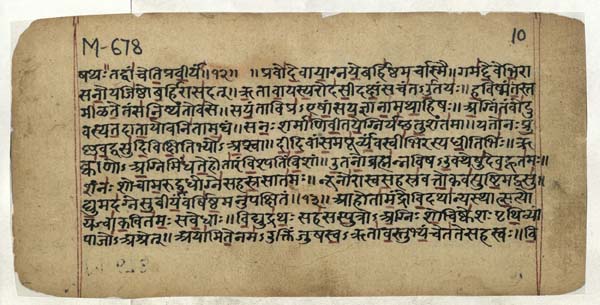 M-678
10
षथः॥तद्वांचेतिप्रवीर्यं॥१२॥ ॥प्रवोदेवायाग्नयेबर्हिष्ठमर्चास्मै॥गमद्देवेभिरा
सनोयजिष्ठोबर्हिरासदत्॥ऋतावायस्यरोदसीदक्षंसचंतऽऊतयः॥हविष्मंतस्त
मीळतेतंसनिष्यंतोवसे॥सयंताविप्रऽएषांसयज्ञानामथाहिषः॥अग्निंतंवोदु
वस्यतदातायोवनितामघं॥सनःशर्माणिवीतयेग्निर्यच्छतुशंतमा॥यतोनःप्रु
ष्णवद्वसुदिविक्षितिभ्योऽअप्स्वा॥दीदिवांसमपूर्व्यंवस्वीभिरस्यधीतिभिः॥ऋ
क्वाणोऽअग्निमिंधतेहोतारंविश्पतिंविशां॥उतनोब्रह्मन्नविषऽउक्थेषुदेवहूतमः॥
शंनःशोचामरुद्वृधोग्नेसहस्रसातमः॥नूनोरास्वसहस्रवत्तोकवत्पुष्टिमद्वसु॥
द्युमदग्नेसुवीर्यंवर्षिष्ठमनुपक्षितं॥१३॥आहोतामंद्रोविदथान्यस्थात्सत्यो
यज्वाकवितमःसवेधाः॥विद्युद्रथःसहसस्पुत्रोऽअग्निःशोचिष्केशःपृथिव्यां
पाजोऽअश्रेत्॥अयामितेनमऽउक्तिंजुषस्वऽऋतावस्तुभ्यंचेततेसहस्वः॥वि